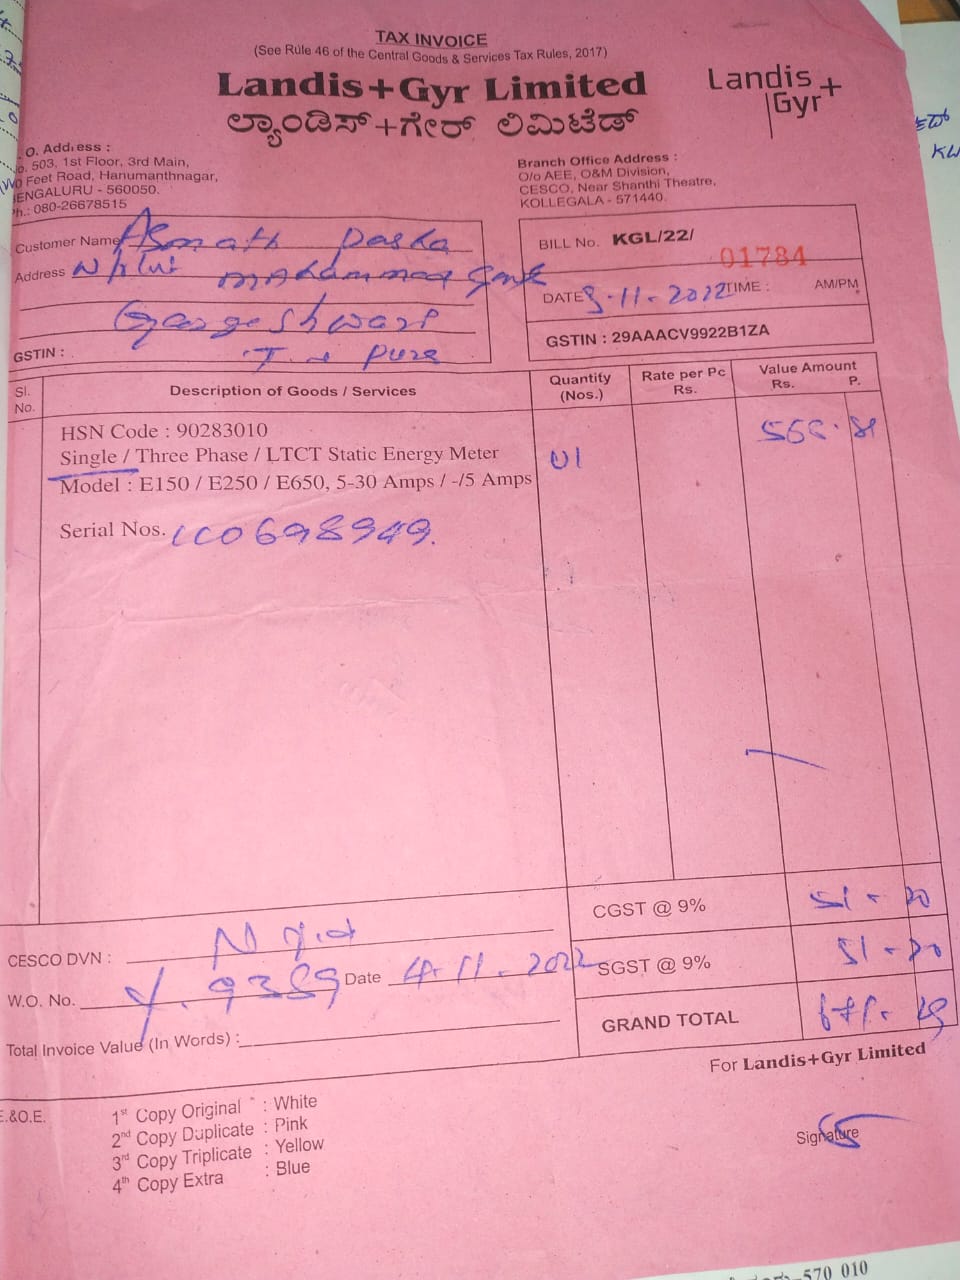 TAX INVOICE
(See Rule 46 of the Central Goods & Services Tax Rules, 2017)
Landis+Gyr Limited
ಲ್ಯಾಂಡಿಸ್+ಗೇರ್ ಲಿಮಿಟೆಡ್
Landis+
Gyr
. O. Address :
o. 503, 1st Floor, 3rd Main,
Feet Road, Hanumanthnagar,
ENGALURU - 560050.
Ph.: 080-26678515
Branch Office Address :
O/o AEE, O&M Division,
CESCO, Near Shanthi Theatre,
KOLLEGALA - 571440.
Customer Name Asmath Pasha
Address mahammad
GSTIN :
BILL No. KGL/22/ 01784
DATE -11-2022 TIME : AM/PM
GSTIN : 29AAACV9922B1ZA
Sl. No. Description of Goods / Services Quantity (Nos.) Rate per Pc Rs. Value Amount Rs. P.
HSN Code : 90283010
Single / Three Phase / LTCT Static Energy Meter 01
Model : E150 / E250 / E650, 5-30 Amps / -/5 Amps
Serial Nos.
CGST @ 9% 51-20
CESCO DVN :
SGST @ 9% 51-20
W.O. No. Date 4-11-2022
GRAND TOTAL
Total Invoice Value (In Words) :
For Landis+Gyr Limited
E.&O.E.
1st Copy Original : White
2nd Copy Duplicate : Pink
3rd Copy Triplicate : Yellow
4th Copy Extra : Blue
Signature
570 010